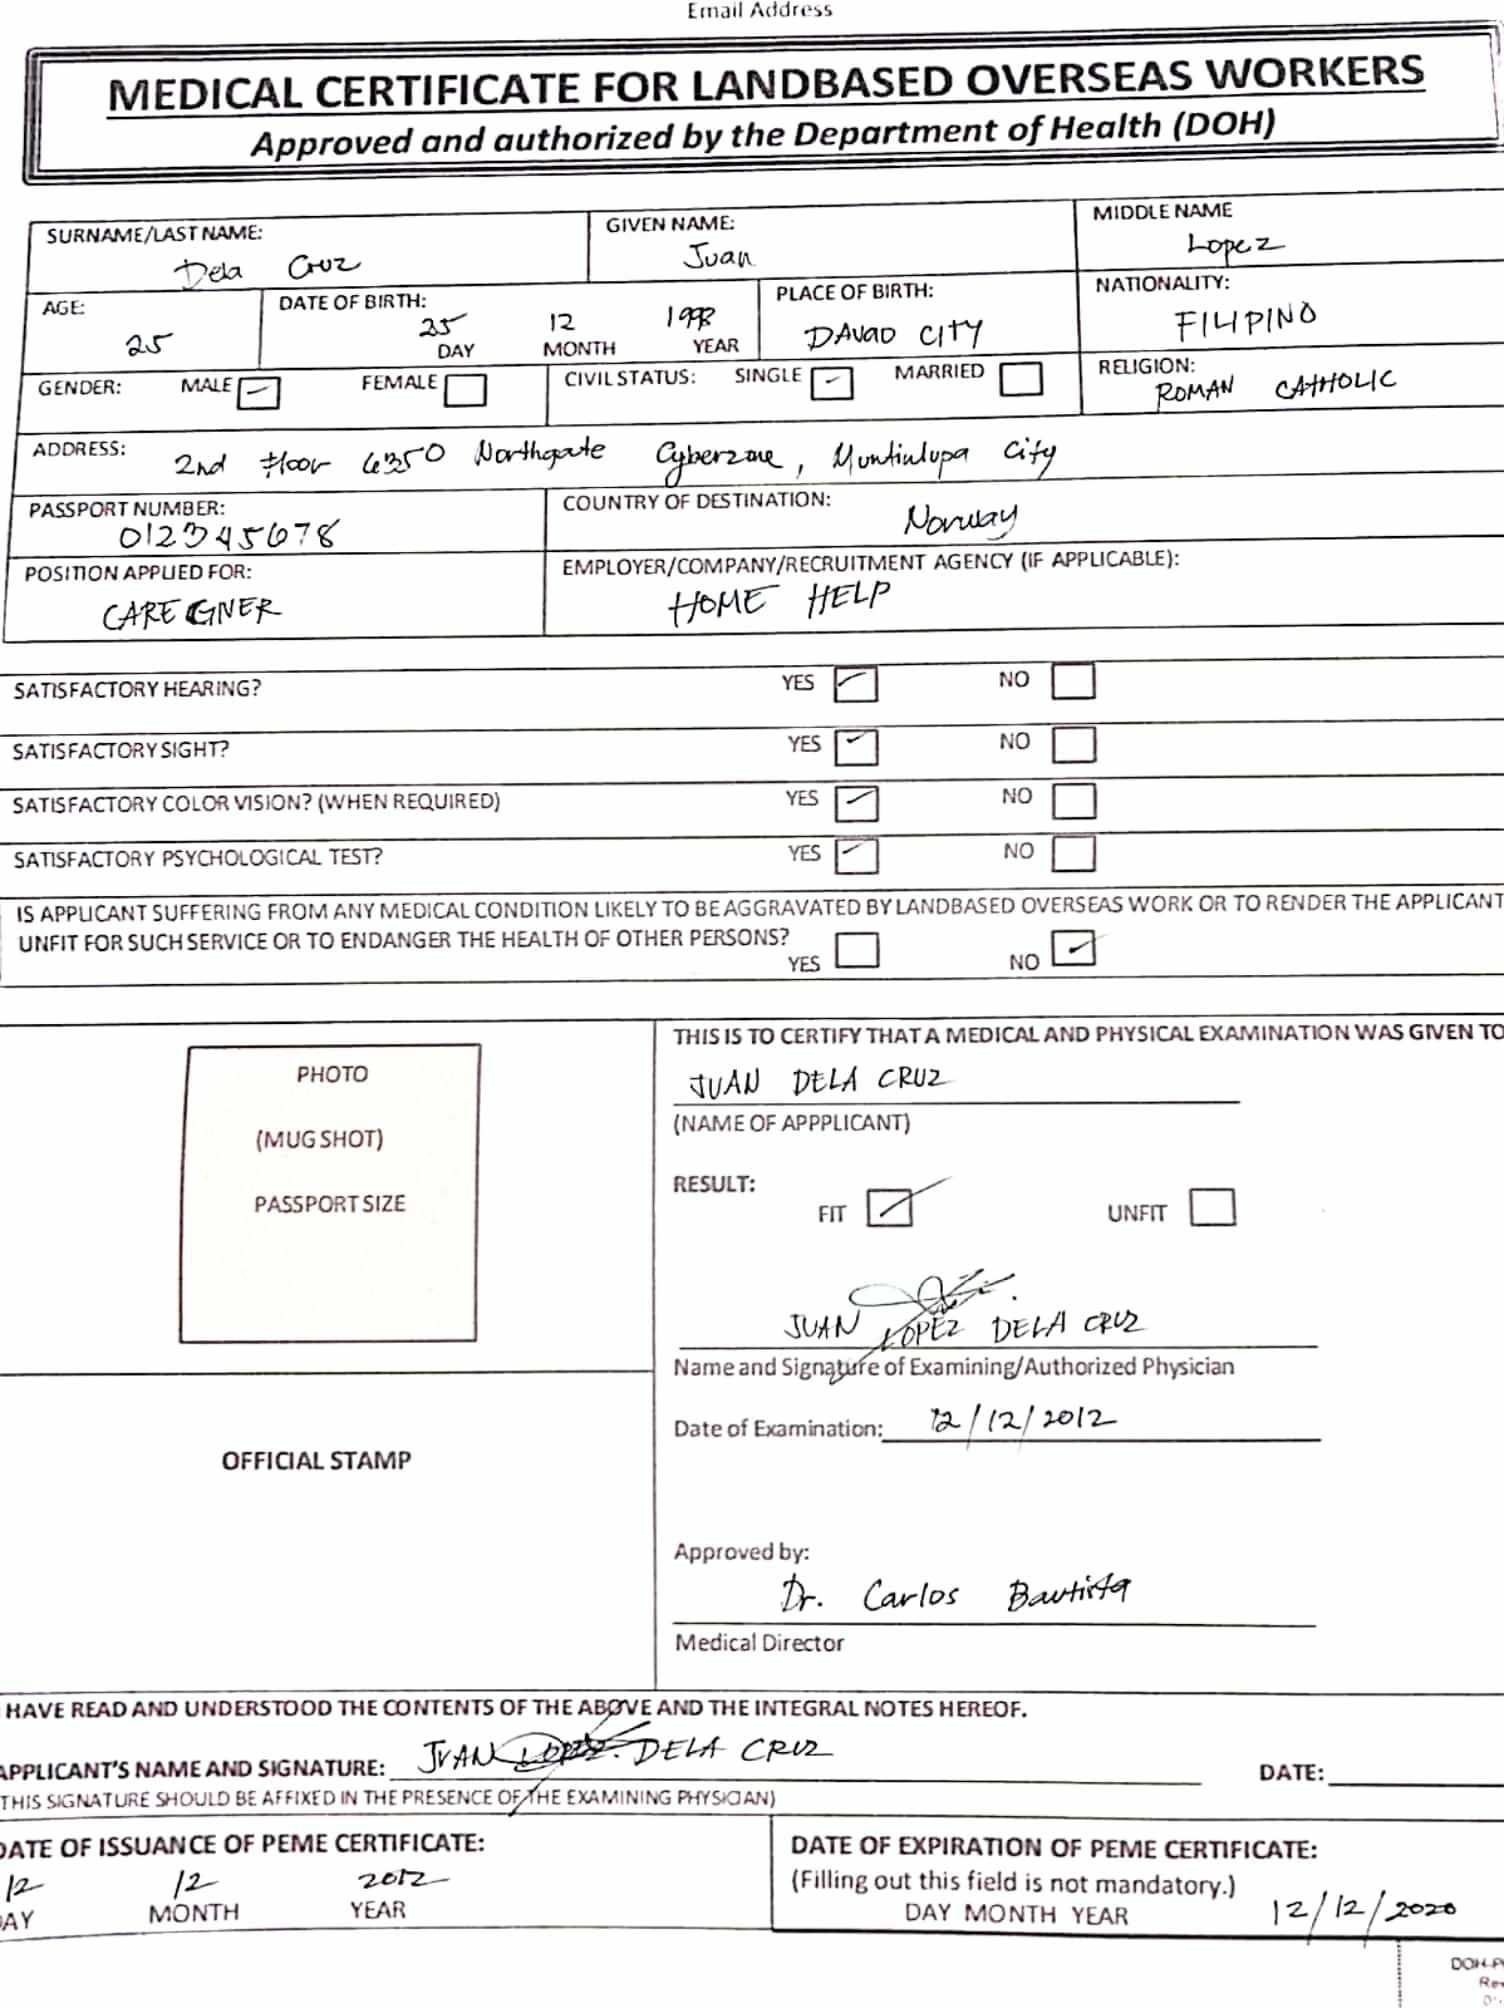 Email Address
MEDICAL CERTIFICATE FOR LANDBASED OVERSEAS WORKERS
Approved and authorized by the Department of Health (DOH)
SURNAME/LAST NAME: GIVEN NAME: MIDDLE NAME
Dela Cruz Juan Lopez
AGE: DATE OF BIRTH: PLACE OF BIRTH: NATIONALITY:
25 25 12 1998 DAVAO CITY FILIPINO
DAY MONTH YEAR
GENDER: MALE FEMALE CIVIL STATUS: SINGLE MARRIED RELIGION:
ROMAN CATHOLIC
ADDRESS: 2nd Floor 6350 Northgate Cyberzone, Muntinlupa City
PASSPORT NUMBER: COUNTRY OF DESTINATION:
012345678 Norway
POSITION APPLIED FOR: EMPLOYER/COMPANY/RECRUITMENT AGENCY (IF APPLICABLE):
CAREGIVER HOME HELP
SATISFACTORY HEARING? YES NO
SATISFACTORY SIGHT? YES NO
SATISFACTORY COLOR VISION? (WHEN REQUIRED) YES NO
SATISFACTORY PSYCHOLOGICAL TEST? YES NO
IS APPLICANT SUFFERING FROM ANY MEDICAL CONDITION LIKELY TO BE AGGRAVATED BY LANDBASED OVERSEAS WORK OR TO RENDER THE APPLICANT
UNFIT FOR SUCH SERVICE OR TO ENDANGER THE HEALTH OF OTHER PERSONS?
YES NO
PHOTO
(MUG SHOT)
PASSPORT SIZE
OFFICIAL STAMP
THIS IS TO CERTIFY THAT A MEDICAL AND PHYSICAL EXAMINATION WAS GIVEN TO
JUAN DELA CRUZ
(NAME OF APPPLICANT)
RESULT:
FIT UNFIT
JUAN LOPEZ DELA CRUZ
Name and Signature of Examining/Authorized Physician
Date of Examination: 12/12/2012
Approved by:
Dr. Carlos Bautista
Medical Director
HAVE READ AND UNDERSTOOD THE CONTENTS OF THE ABOVE AND THE INTEGRAL NOTES HEREOF.
APPLICANT'S NAME AND SIGNATURE: JUAN LOPEZ DELA CRUZ DATE:
THIS SIGNATURE SHOULD BE AFFIXED IN THE PRESENCE OF THE EXAMINING PHYSICIAN)
DATE OF ISSUANCE OF PEME CERTIFICATE:
12 12 2012
DAY MONTH YEAR
DATE OF EXPIRATION OF PEME CERTIFICATE:
(Filling out this field is not mandatory.)
DAY MONTH YEAR 12/12/2020